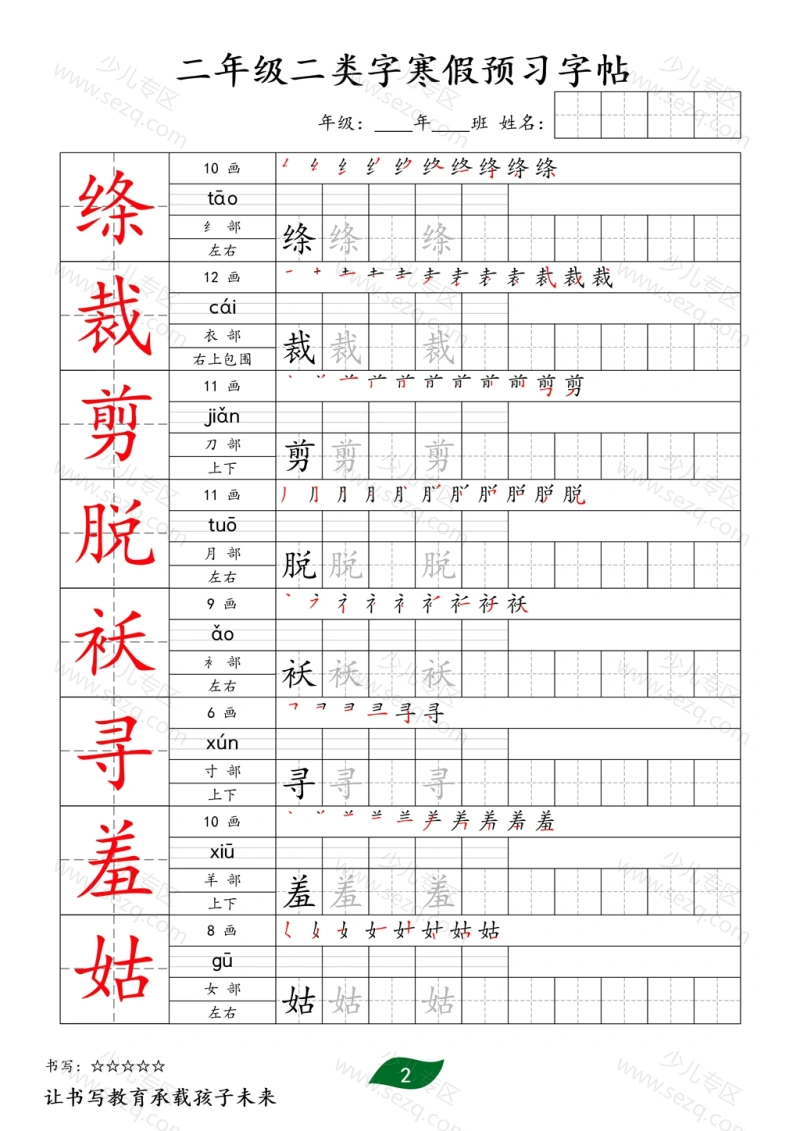 二年级二类字寒假预习字帖
年级：____年____班 姓名：
绦
10 画
tāo
纟 部
左右
绦 绦 绦
裁
12 画
cái
衣 部
右上包围
裁 裁 裁
剪
11 画
jiǎn
刀 部
上下
剪 剪 剪
脱
11 画
tuō
月 部
左右
脱 脱 脱
袄
9 画
ǎo
衤 部
左右
袄 袄 袄
寻
6 画
xún
寸 部
上下
寻 寻 寻
羞
10 画
xiū
羊 部
上下
羞 羞 羞
姑
8 画
gū
女 部
左右
姑 姑 姑
书写：☆☆☆☆☆
2
让书写教育承载孩子未来
少儿专区
www.sezq.com